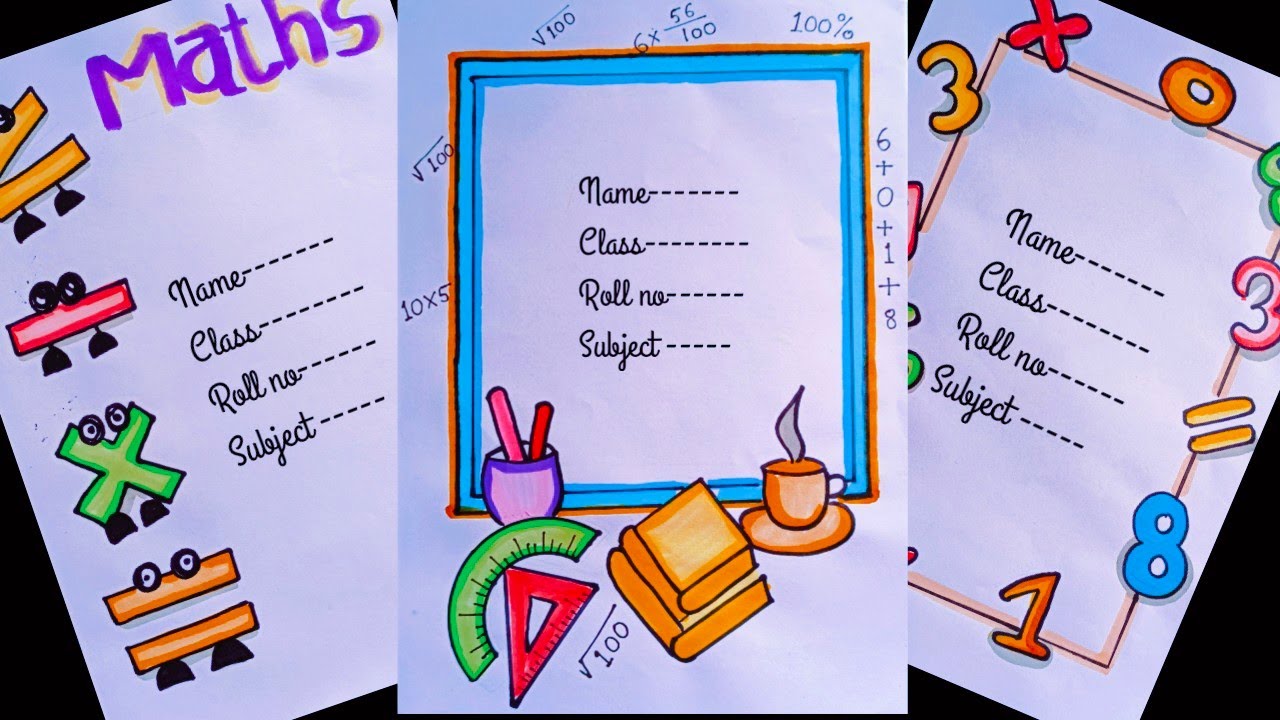 Maths
Name--------
Class---------
Roll no-------
Subject ------
√100
6 × 56/100
100%
√100
10×5
6+0+1+8
Name-------
Class--------
Roll no------
Subject -----
√100
3
×
0
3
=
8
1
Name-------
Class--------
Roll no------
Subject -----